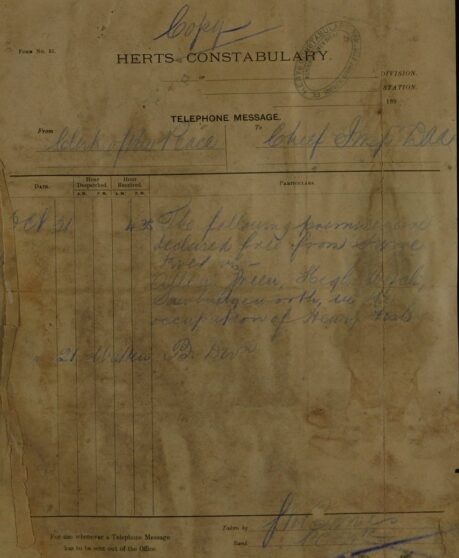 Copy
Form No. 85.
HERTS CONSTABULARY.
D or
DIVISION.
STATION.
189
TELEPHONE MESSAGE.
From To
Clerk of the Peace Chief Insp
Date. Hour Despatched. Hour Received. Particulars.
A.M. P.M. A.M. P.M.
Oct 21 4 35 The following premises are
declared free from Swine
Fever viz:-
Green, High Wych,
Sawbridgeworth, in the
occupation of Henry
21
B. Divn
Taken by
Rank
For use whenever a Telephone Message
has to be sent out of the Office.